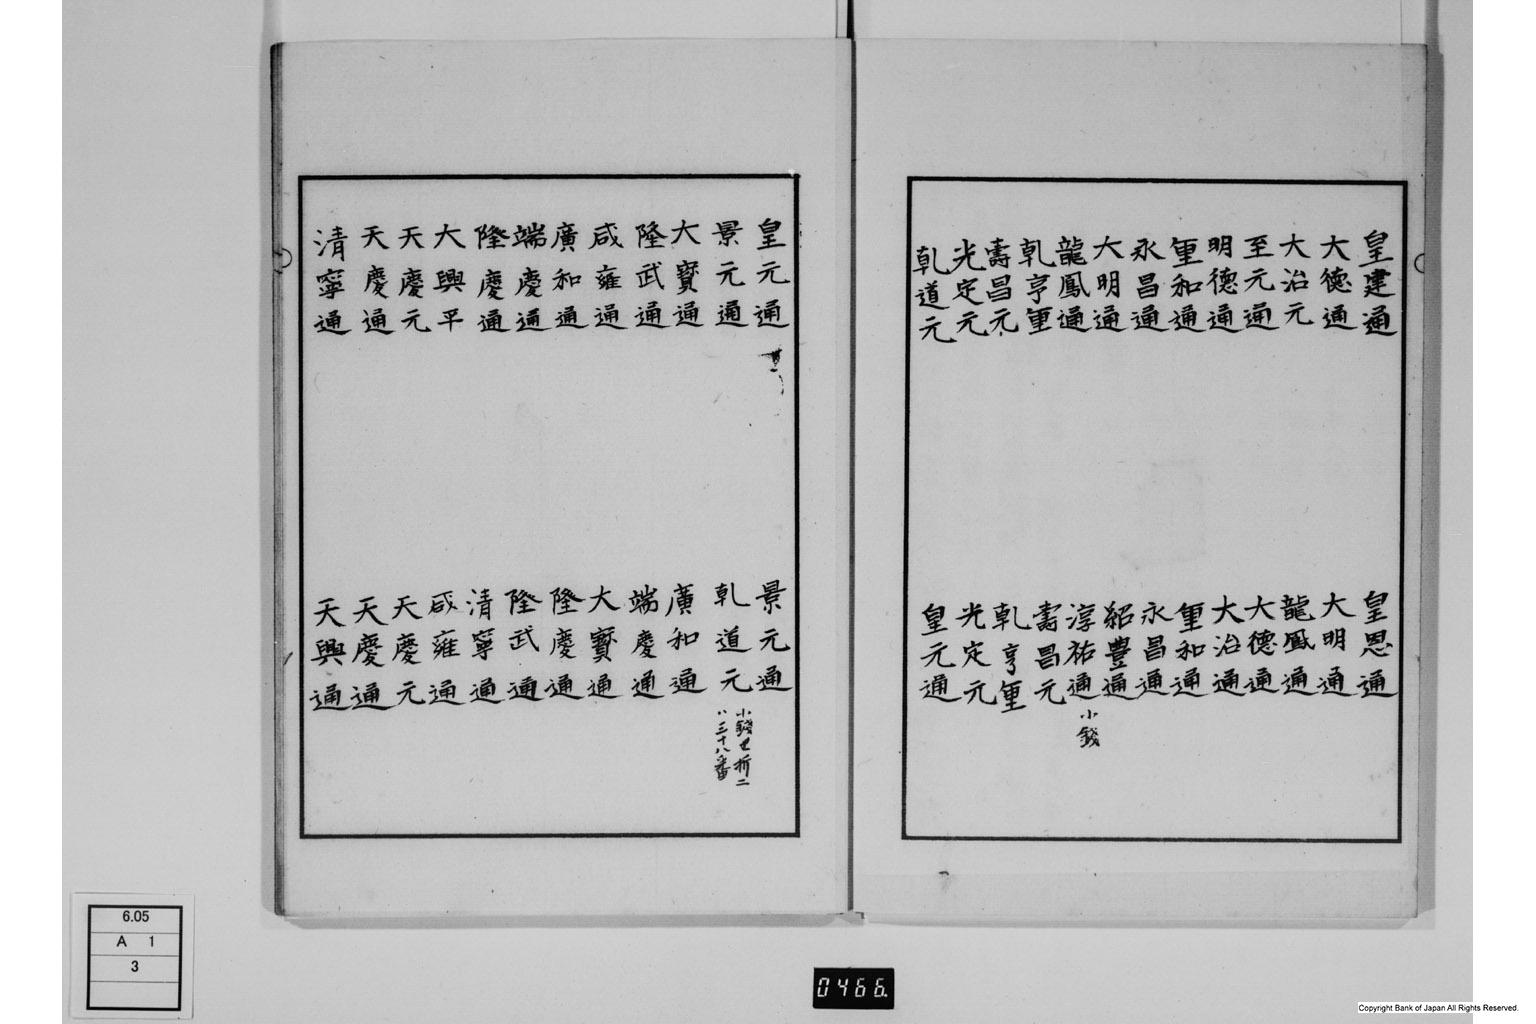 皇建通
大德通
大治元
至元通
明德通
重和通
永昌通
大明通
龍鳳通
乾亨重
壽昌元
光定元
乾道元
皇恩通
大明通
龍鳳通
大德通
大治通
重和通
永昌通
紹豊通
淳祐通 小錢
壽昌元
乾亨重
光定元
皇元通
皇元通
景元通
大寳通
隆武通
咸雍通
廣和通
端慶通
隆慶通
大興平
天慶元
天慶通
清寧通
景元通
乾道元 小錢 折二
ハ三十八番
廣和通
端慶通
大寳通
隆慶通
隆武通
清寧通
咸雍通
天慶元
天慶通
天興通
6.05
A 1
3
0466.
Copyright Bank of Japan All Rights Reserved.